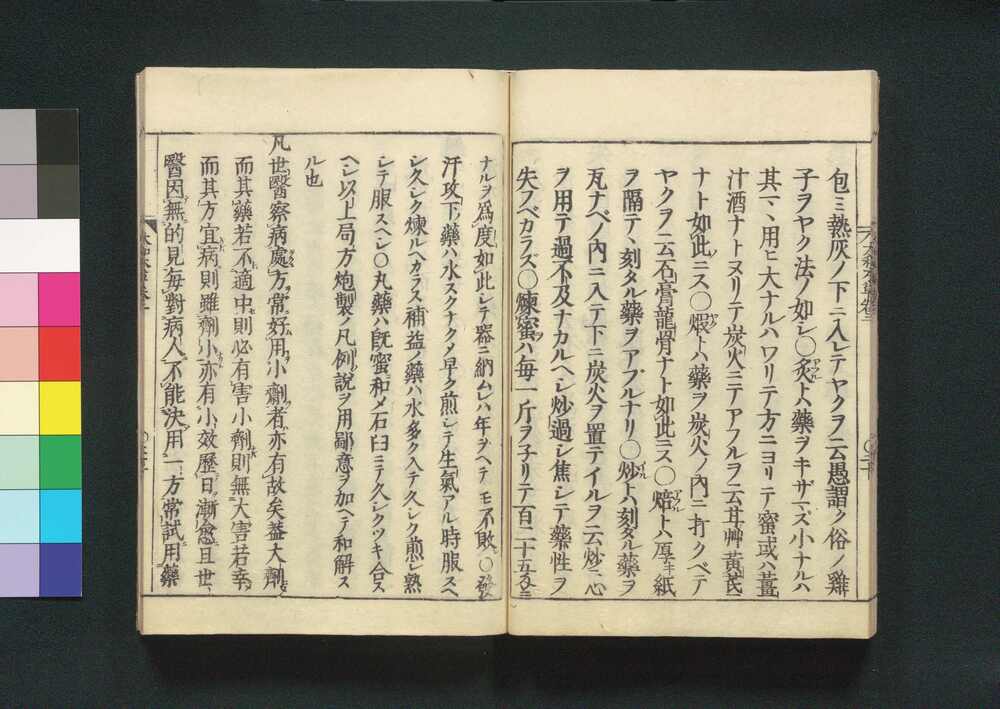 包ミ熱灰ノ下ニ入レテヤクヲ云愚謂ク俗ノ雞
子ヲヤク法ノ如シ○炙トハ藥ヲキザマズ小ナルハ
其マヽ用ヒ大ナルハワリテ方ニヨリテ蜜或ハ薑
汁酒ナトヌリテ炭火ニテアフルヲ云甘艸黃芪
ナト如此ニス○煆トハ藥ヲ炭火ノ內ニ打クベテ
ヤクヲ云石膏龍骨ナト如此ニス○焙トハ厚キ紙
ヲ隔テヽ刻タル藥ヲアブルナリ○炒トハ刻タル藥ヲ
瓦ナベノ內ニ入テ下ニ炭火ヲ置テイルヲ云炒ニ心
ヲ用テ過不及ナカルヘシ炒過シ焦シテ藥性ヲ
失フベカラズ○煉蜜ハ每一斤ヲ子リテ百二十五匁ニ
ナルヲ爲度如此シテ器ニ納ムレハ年ヲヘテモ不敗○發
汗攻下藥ハ水スクナクメ早ク煎シテ生氣アル時服スヘ
シ久シク煉ルヘカラス補益ノ藥ハ水多ク入テ久シク煎シ熟
シテ服スヘシ○丸藥ハ旣蜜和メ石臼ニテ久シクツキ合ス
ヘシ以上局方炮製ノ凡例說ヲ用鄙意ヲ加ヘテ和解ス
ル也
凡世醫察病處方常好用小劑者亦有故矣蓋大劑
而其藥若不適中則必有害小劑則無大害若幸
而其方宜病則雖劑小亦有小效歷日漸愈且世
醫因無的見每對病人不能決用一方常試用藥